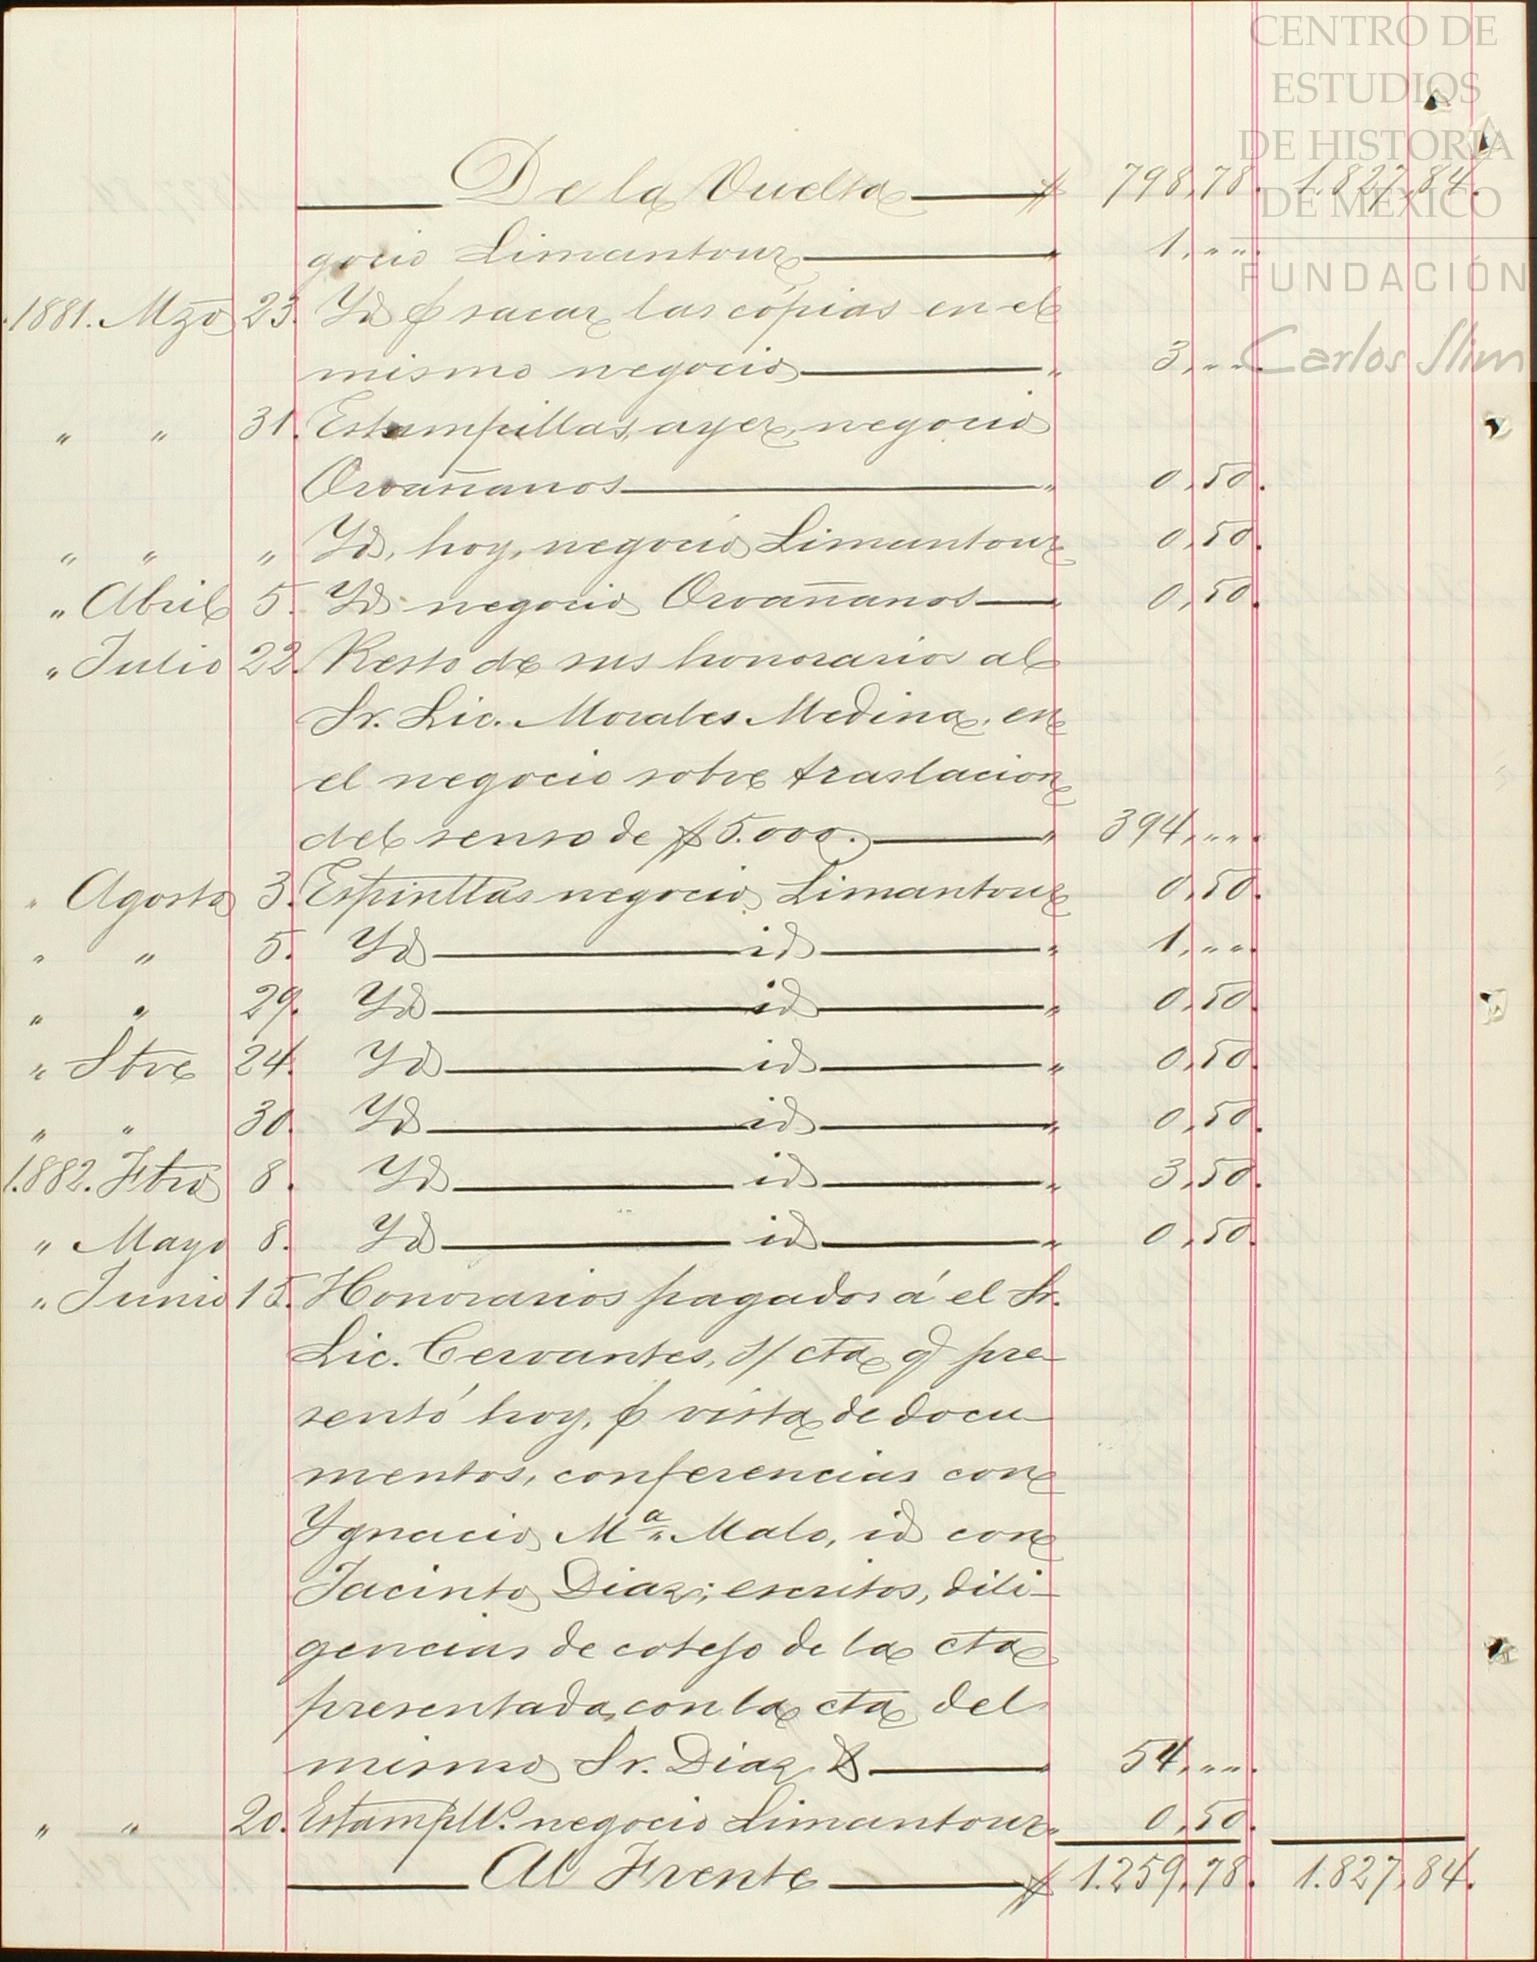 CENTRO DE
ESTUDIOS
DE HISTORIA
DE MÉXICO
FUNDACIÓN
Carlos Slim
De la Vuelta $ 798,78. 1.827,84.
gocio Limantour " 1,"".
1881. Mzo 23. Yd p sacar las cópias en el
mismo negocio " 3,"".
" " 31. Estampillas, ayer, negocio
Orvañanos " 0,50.
" " " Yd, hoy, negocio Limantour 0,50.
" Abril 5. Yd negocio Orvañanos " 0,50.
" Julio 22. Resto de sus honorarios al
Sr. Lic. Morales Medina, en
el negocio sobre traslacion
del senso de $5.000. " 394,"".
" Agosto 3. Espinllas negocio Limantour 0,50.
" " 5. Yd id " 1,"".
" " 29. Yd id " 0,50.
" Stre 24. Yd id " 0,50.
" " 30. Yd id " 0,50.
1.882. Fbro 8. Yd id " 3,50.
" Mayo 8. Yd id " 0,50.
" Junio 15. Honorarios pagados á el Sr.
Lic. Cervantes, s/ cta q pre-
sentó hoy, p vista de docu-
mentos, conferencias con
Ygnacio Mª Malo, id con
Jacinto Diaz; escritos, dili-
gencias de cotejo de la cta
presentada, con la cta del
mismo Sr. Diaz & " 54,"".
" " 20. Estampll.s negocio Limantour " 0,50.
Al Frente $ 1.259,78. 1.827,84.